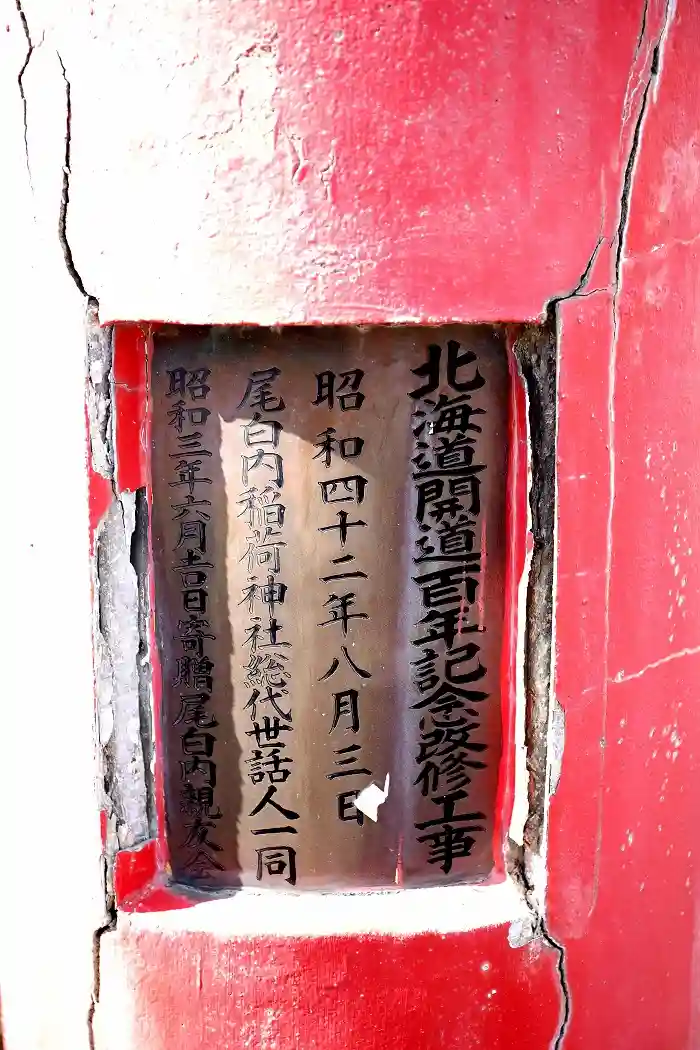 北海道開道百年記念改修工事
昭和四十二年八月三日
尾白内稲荷神社総代世話人一同
昭和三年六月吉日寄贈尾白内親友会